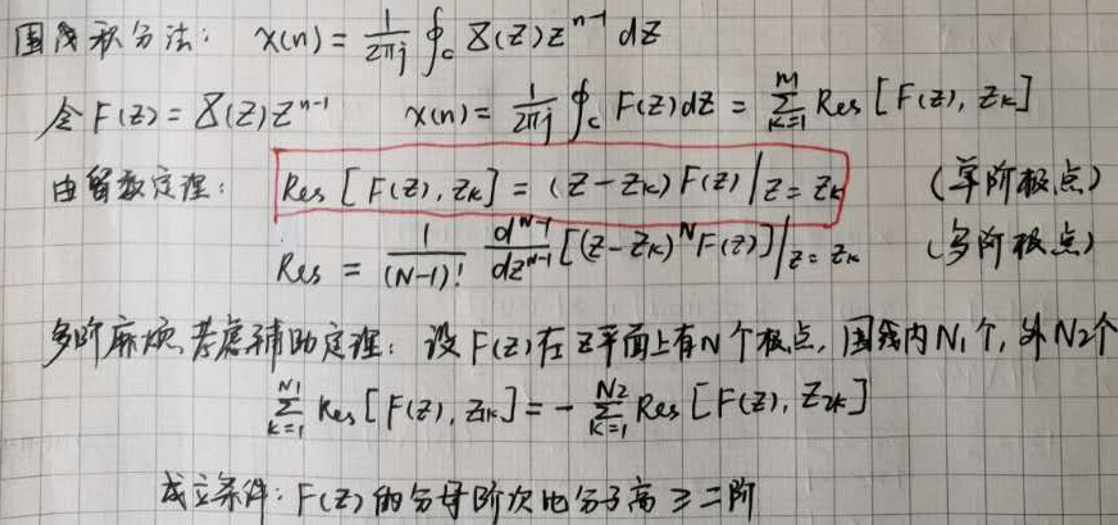 围线积分法: x(n) = \frac{1}{2πj} ∮_c X(z) z^{n-1} dz
令 F(z) = X(z) z^{n-1} x(n) = \frac{1}{2πj} ∮_c F(z) dz = \sum_{k=1}^{M} Res [F(z), z_k]
由留数定理: Res [F(z), z_k] = (z - z_k) F(z) |_{z = z_k} (单阶极点)
Res = \frac{1}{(N-1)!} \frac{d^{N-1}}{dz^{N-1}} [(z - z_k)^N F(z)] |_{z = z_k} (多阶极点)
多阶麻烦, 考虑辅助定理: 设 F(z) 在 z 平面上有 N 个极点, 围线内 N_1 个, 外 N_2 个
\sum_{k=1}^{N_1} Res [F(z), z_{1k}] = - \sum_{k=1}^{N_2} Res [F(z), z_{2k}]
成立条件: F(z) 的分母阶次比分子高 ≥ 二阶